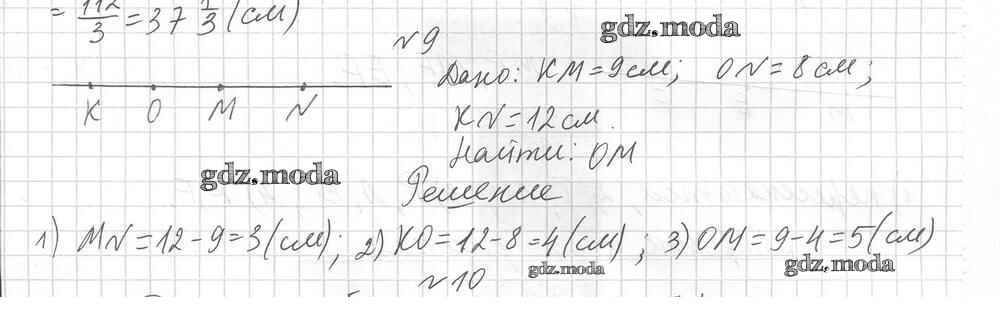 = 112/3 = 37 1/3 (см)
gdz.moda
№9
Дано: KM = 9 см; ON = 8 см;
K O M N
KN = 12 см.
Найти: OM
gdz.moda
Решение
1) MN = 12 - 9 = 3 (см); 2) KO = 12 - 8 = 4 (см); 3) OM = 9 - 4 = 5 (см)
gdz.moda
gdz.moda
№10